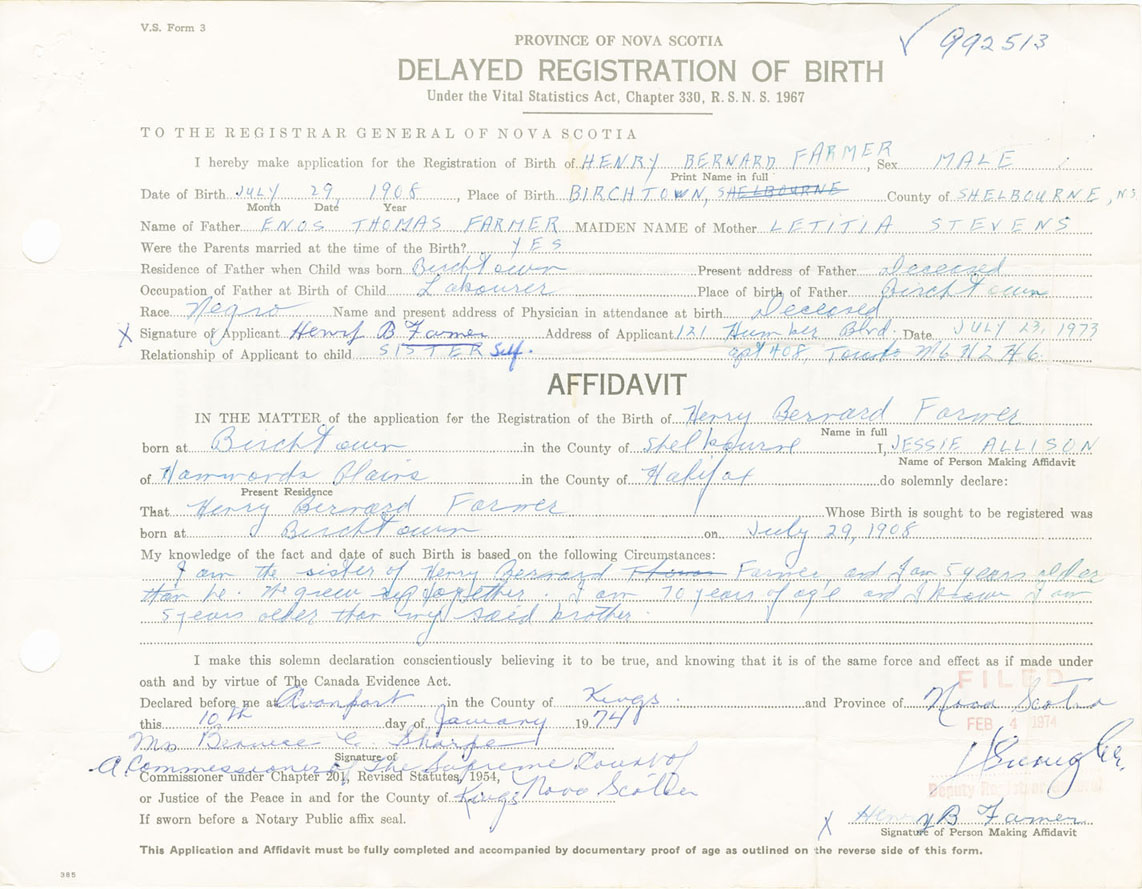 V.S. Form 3
992513
PROVINCE OF NOVA SCOTIA
DELAYED REGISTRATION OF BIRTH
Under the Vital Statistics Act, Chapter 330, R. S. N. S. 1967
TO THE REGISTRAR GENERAL OF NOVA SCOTIA
I hereby make application for the Registration of Birth of HENRY BERNARD FARMER, Sex MALE
Print Name in full
Date of Birth JULY 29, 1908, Place of Birth BIRCHTOWN, SHELBOURNE County of SHELBOURNE, N.S.
Month Date Year
Name of Father ENOS THOMAS FARMER MAIDEN NAME of Mother LETITIA STEVENS
Were the Parents married at the time of the Birth? YES
Residence of Father when Child was born Birchtown Present address of Father Deceased
Occupation of Father at Birth of Child Labourer Place of birth of Father Birchtown
Race Negro Name and present address of Physician in attendance at birth Deceased
X Signature of Applicant Henry B Farmer Address of Applicant 121 Humber Blvd. Date JULY 23, 1973
Relationship of Applicant to child SISTER Self. apt 408, Toronto M6 N2 H6
AFFIDAVIT
IN THE MATTER of the application for the Registration of the Birth of Henry Bernard Farmer
Name in full
born at Birchtown in the County of Shelbourne I, JESSIE ALLISON
Name of Person Making Affidavit
of Hammonds Plains in the County of Halifax do solemnly declare:
Present Residence
That Henry Bernard Farmer Whose Birth is sought to be registered was
born at Birchtown on July 29, 1908
My knowledge of the fact and date of such Birth is based on the following Circumstances:
I am the sister of Henry Bernard Farmer, and I am 5 years older
than he. We grew up together. I am 70 years of age and I know I am
5 years older than my said brother.
I make this solemn declaration conscientiously believing it to be true, and knowing that it is of the same force and effect as if made under
oath and by virtue of The Canada Evidence Act.
FILED
Declared before me at Avonport in the County of Kings and Province of Nova Scotia
this 10th day of January 1974
FEB 4 1974
Mrs Bernice C. Sharpe
Signature of
A Commissioner of The Supreme Court of
Commissioner under Chapter 201, Revised Statutes, 1954,
or Justice of the Peace in and for the County of Kings Nova Scotia
Deputy Registrar General
If sworn before a Notary Public affix seal.
X Henry B Farmer
Signature of Person Making Affidavit
This Application and Affidavit must be fully completed and accompanied by documentary proof of age as outlined on the reverse side of this form.
385